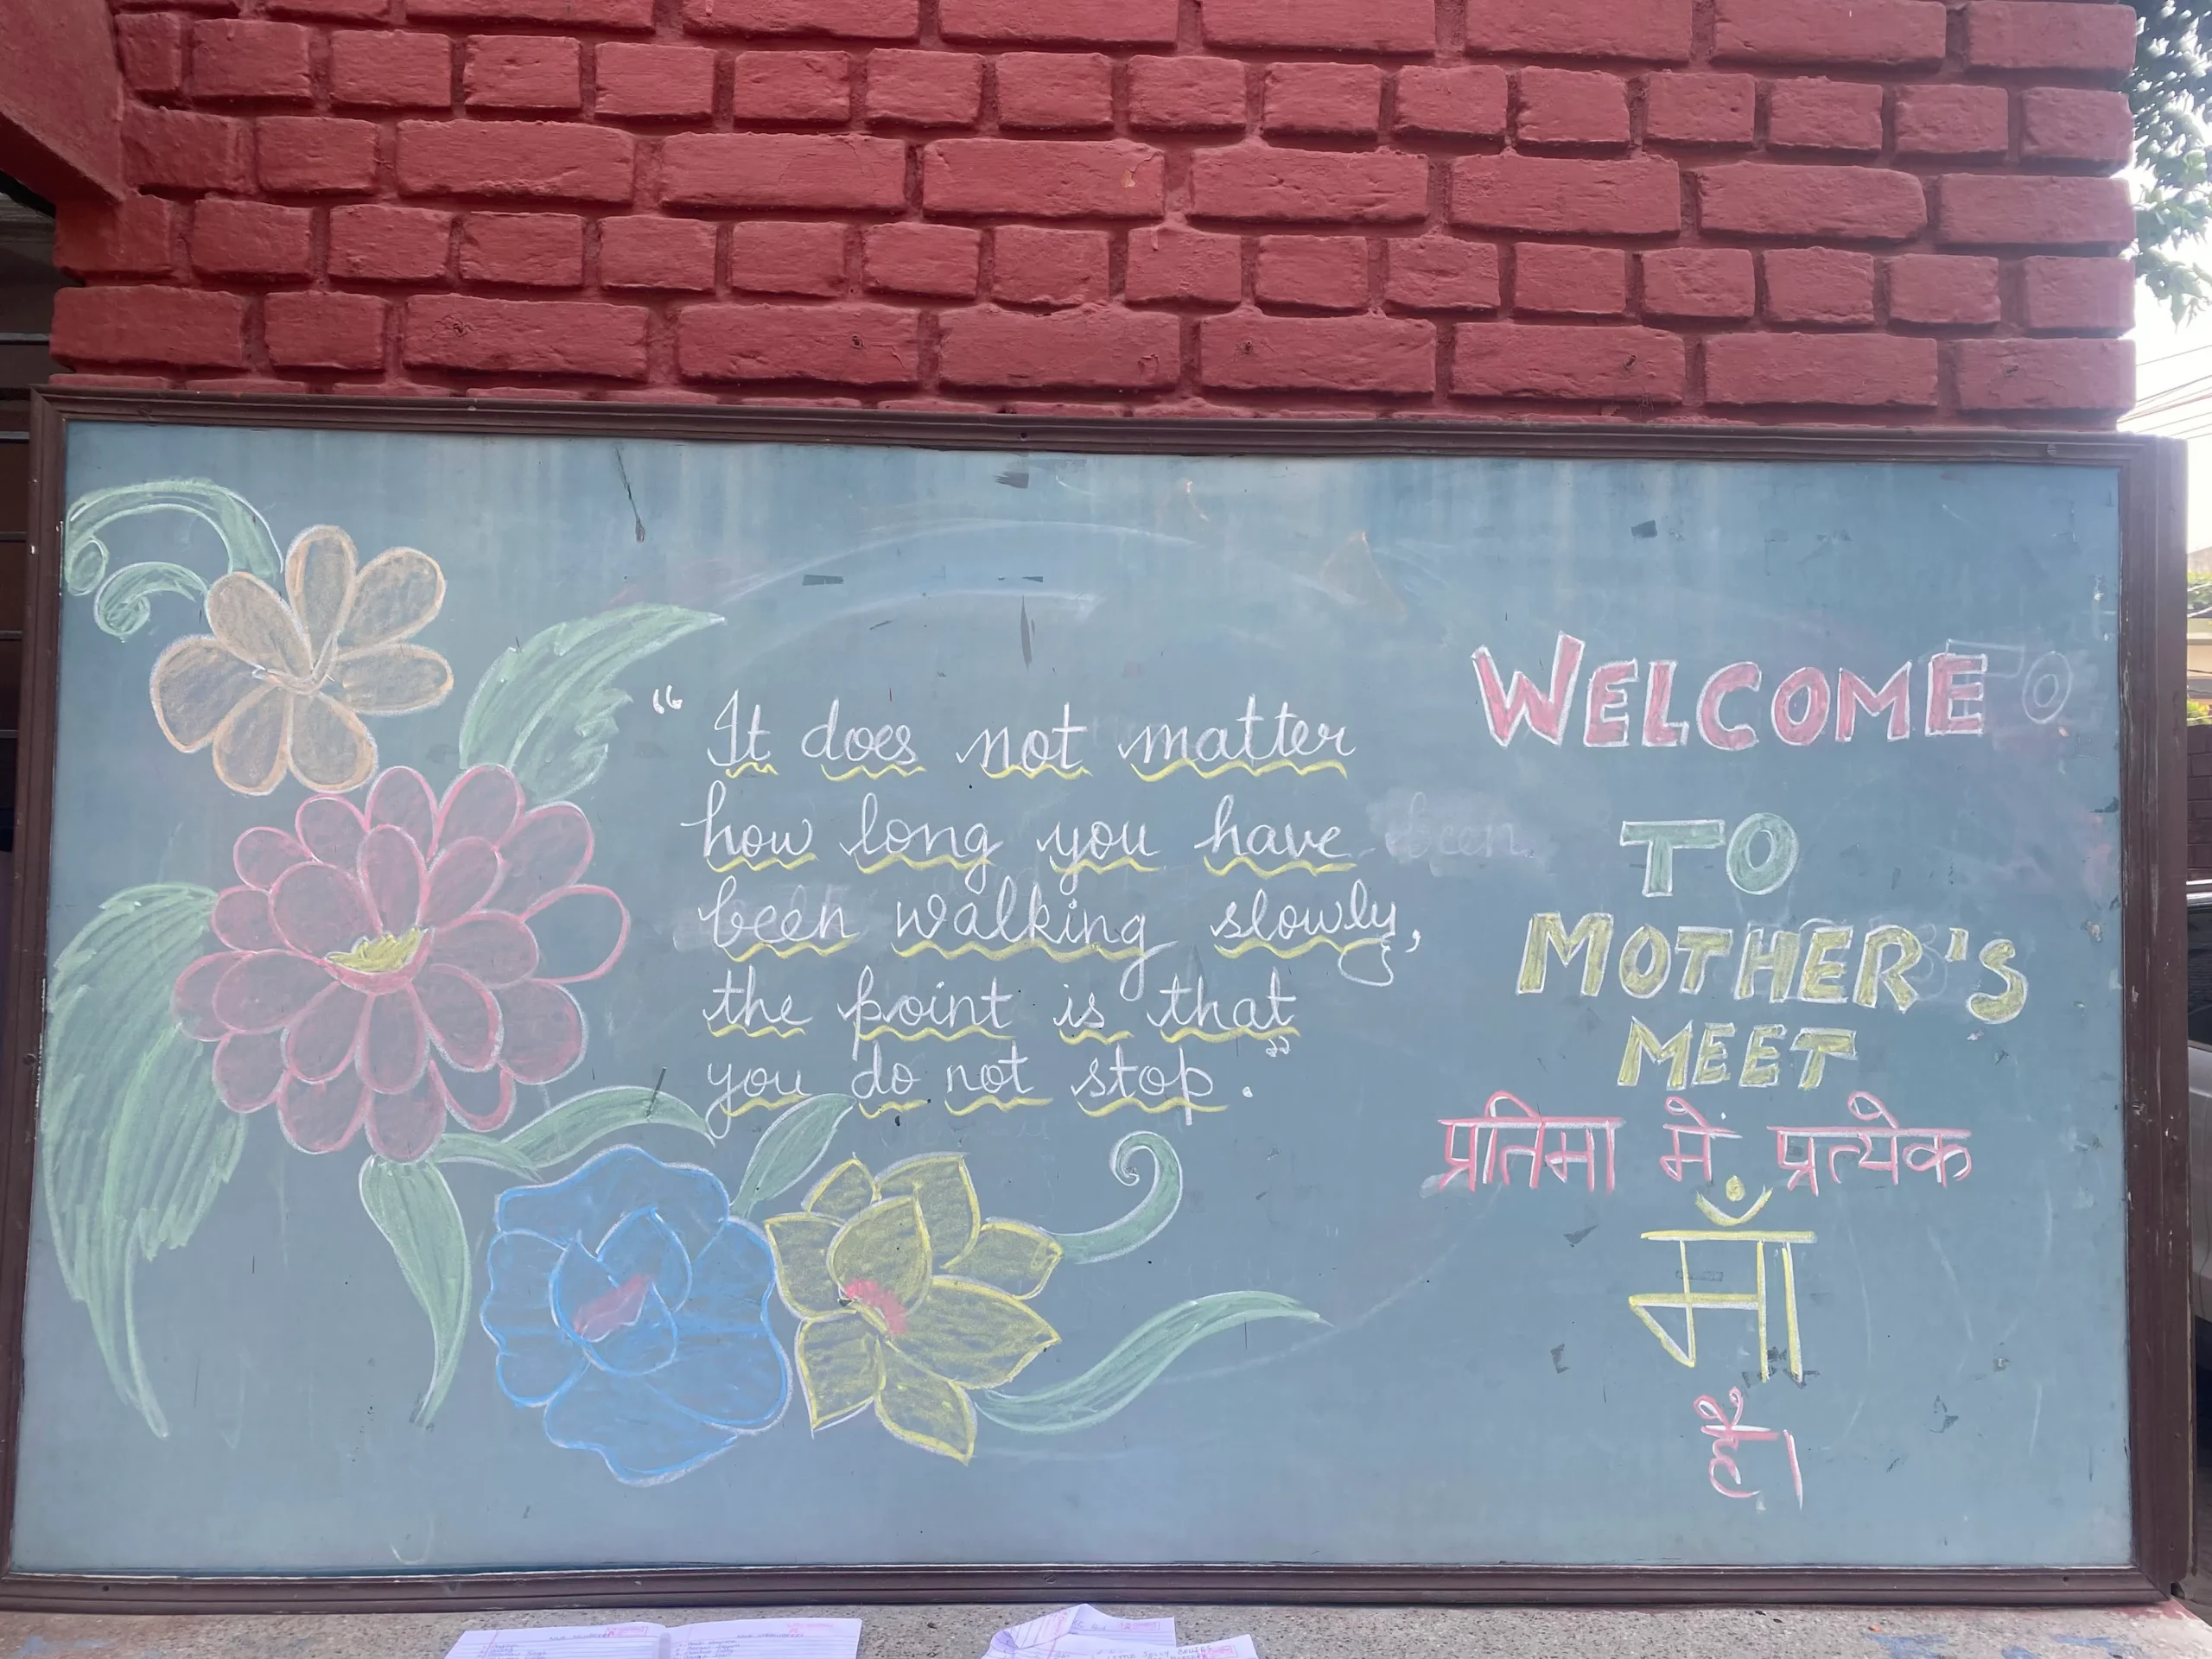 “ It does not matter
how long you have
been walking slowly,
the point is that
you do not stop.”
WELCOME
TO
MOTHER'S
MEET
प्रतिमा में प्रत्येक
माँ
है।